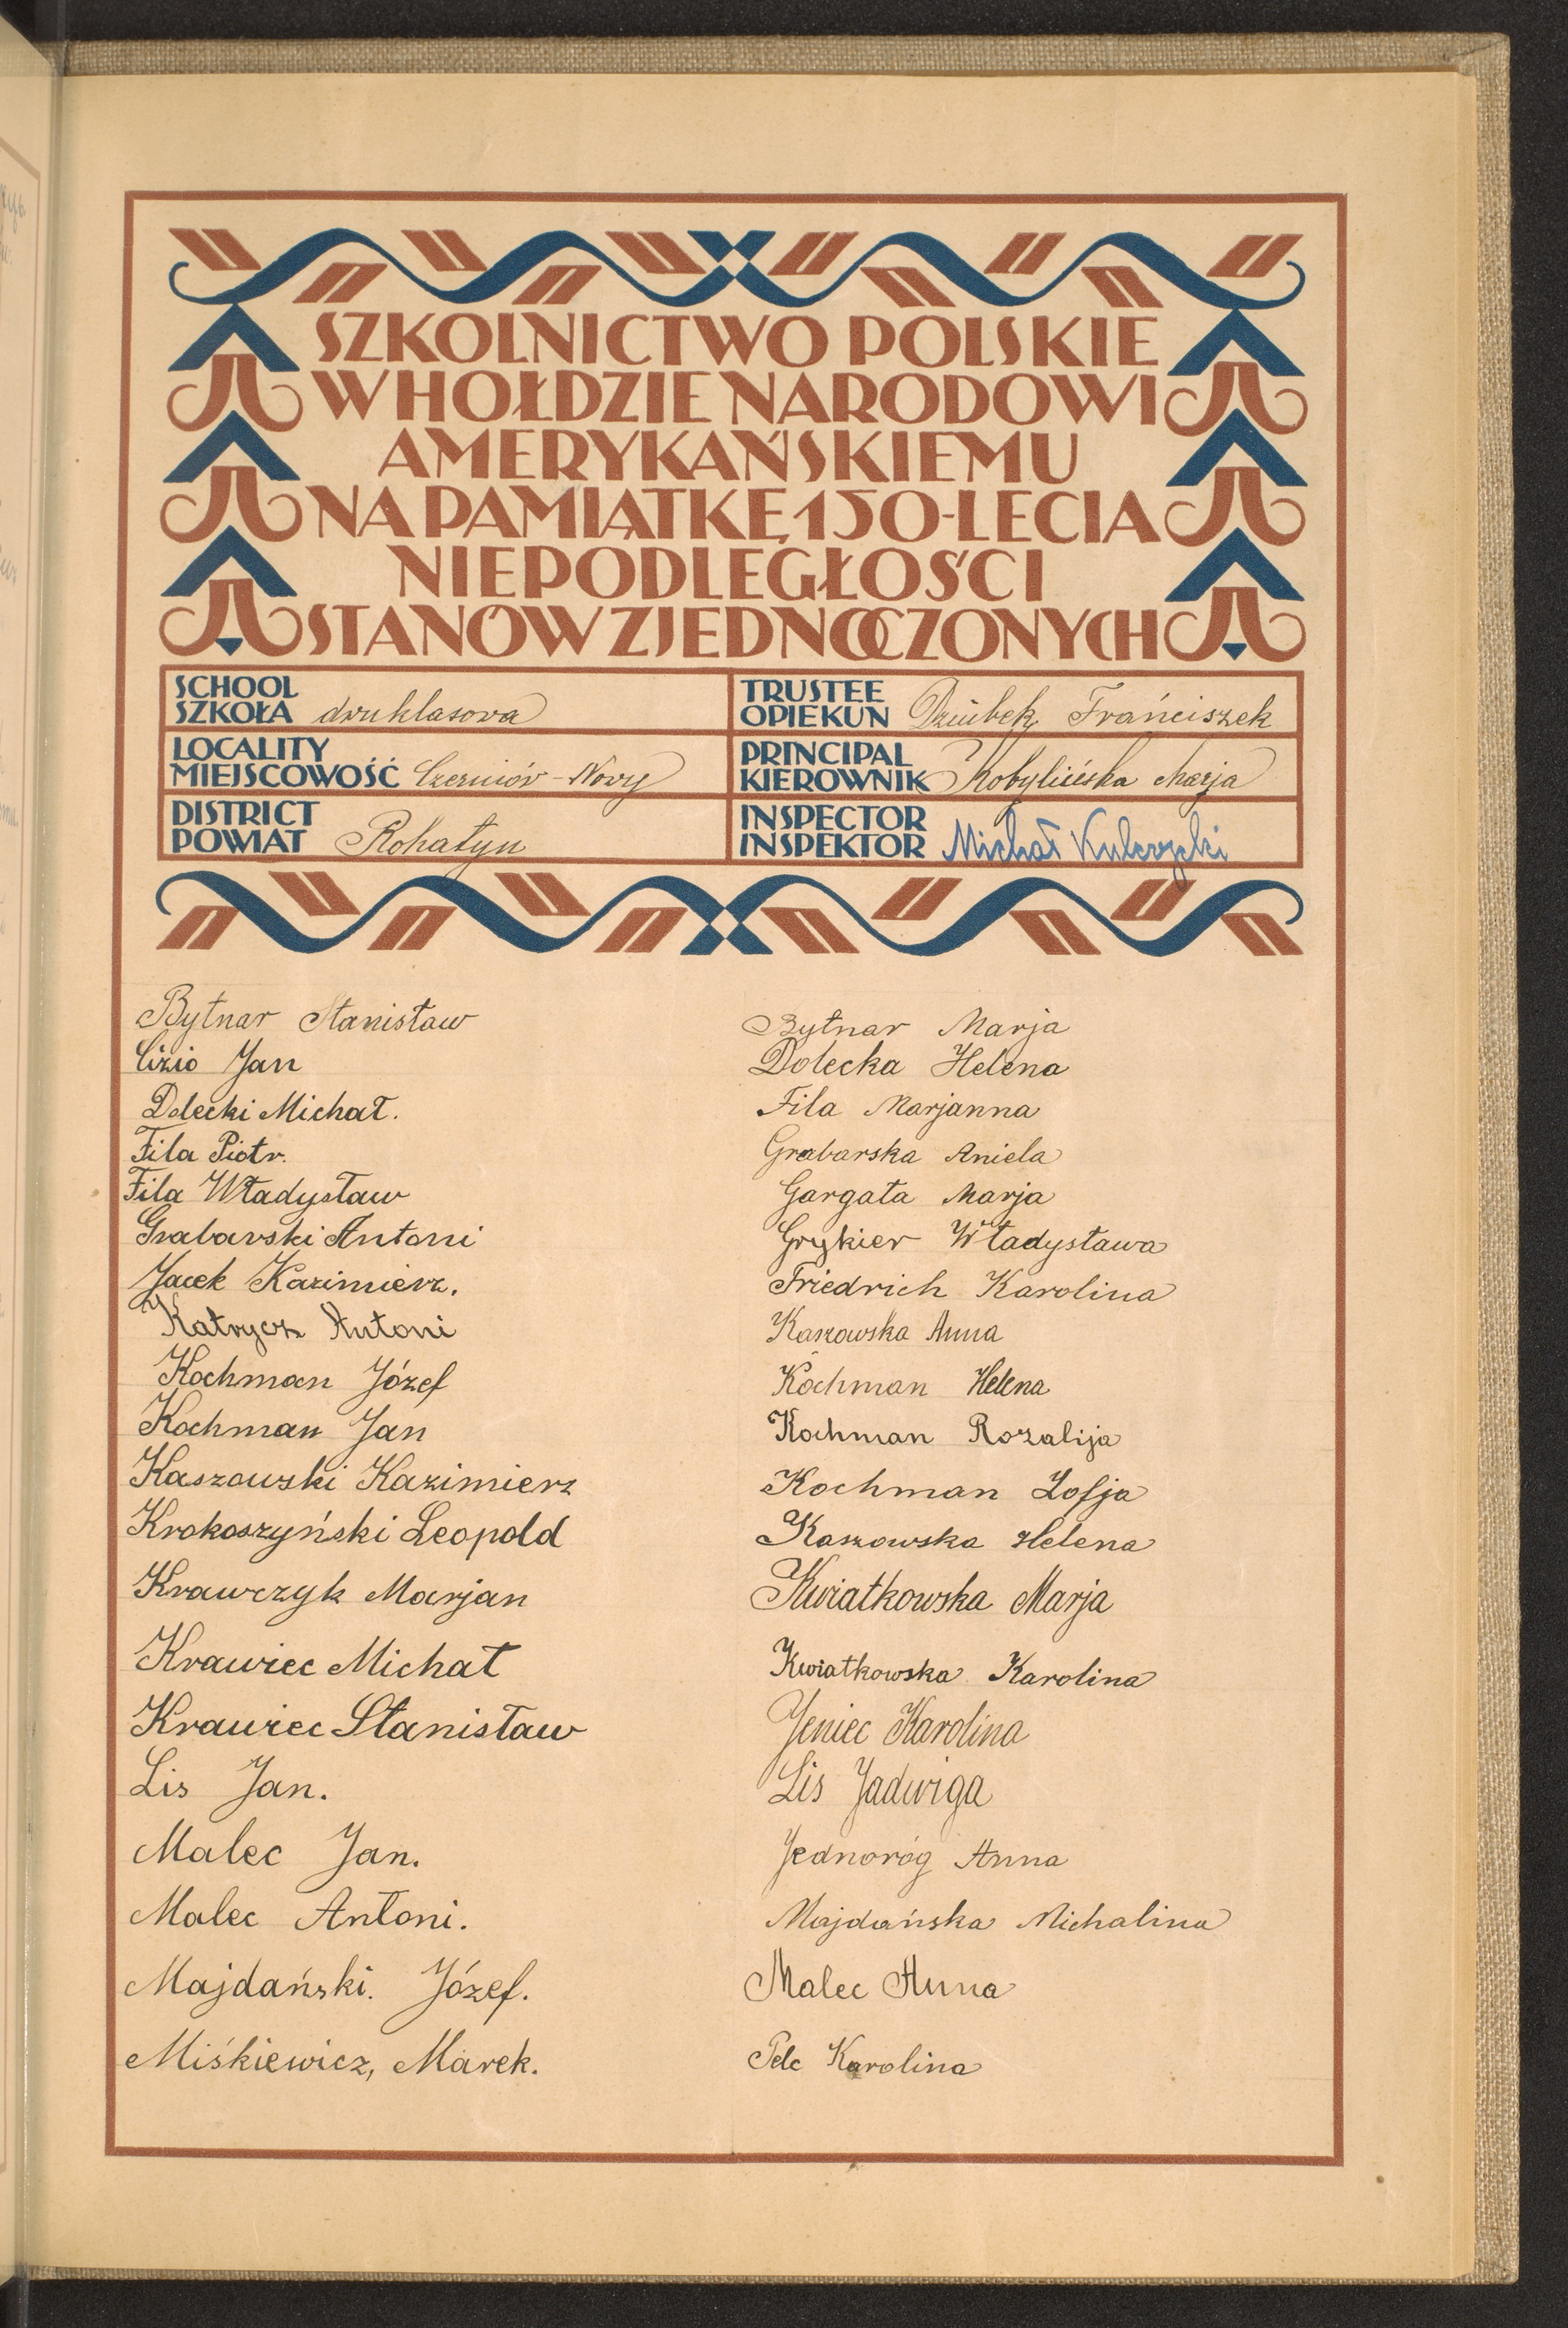 SZKOLNICTWO POLSKIE
W HOŁDZIE NARODOWI
AMERYKAŃSKIEMU
NA PAMIĄTKĘ 150-LECIA
NIEPODLEGŁOŚCI
STANÓW ZJEDNOCZONYCH
SCHOOL
SZKOŁA dwuklasowa
TRUSTEE
OPIEKUN Dziubek Franciszek
LOCALITY
MIEJSCOWOŚĆ Czerniów-Nowy
PRINCIPAL
KIEROWNIK Kobylińska Marja
DISTRICT
POWIAT Rohatyn
INSPECTOR
INSPEKTOR Michał Kulczycki
Bytnar Stanisław
Cizio Jan
Dolecki Michał.
Fila Piotr.
Fila Władysław
Grabarski Antoni
Jacek Kazimierz.
Katrycz Antoni
Kochman Józef
Kochman Jan
Kaszowski Kazimierz
Krokoszyński Leopold
Krawczyk Marjan
Krawiec Michał
Krawiec Stanisław
Lis Jan.
Malec Jan.
Malec Antoni.
Majdański. Józef.
Miśkiewicz, Marek.
Bytnar Marja
Dolecka Helena
Fila Marjanna
Grabarska Aniela
Gargała Marja
Grykier Władysława
Friedrich Karolina
Kaszowska Anna
Kochman Helena
Kochman Rozalija
Kochman Zofja
Kaszowska Helena
Kwiatkowska Marja
Kwiatkowska Karolina
Jeniec Karolina
Lis Jadwiga
Jednoróg Anna
Majdańska Michalina
Malec Anna
Pelc Karolina